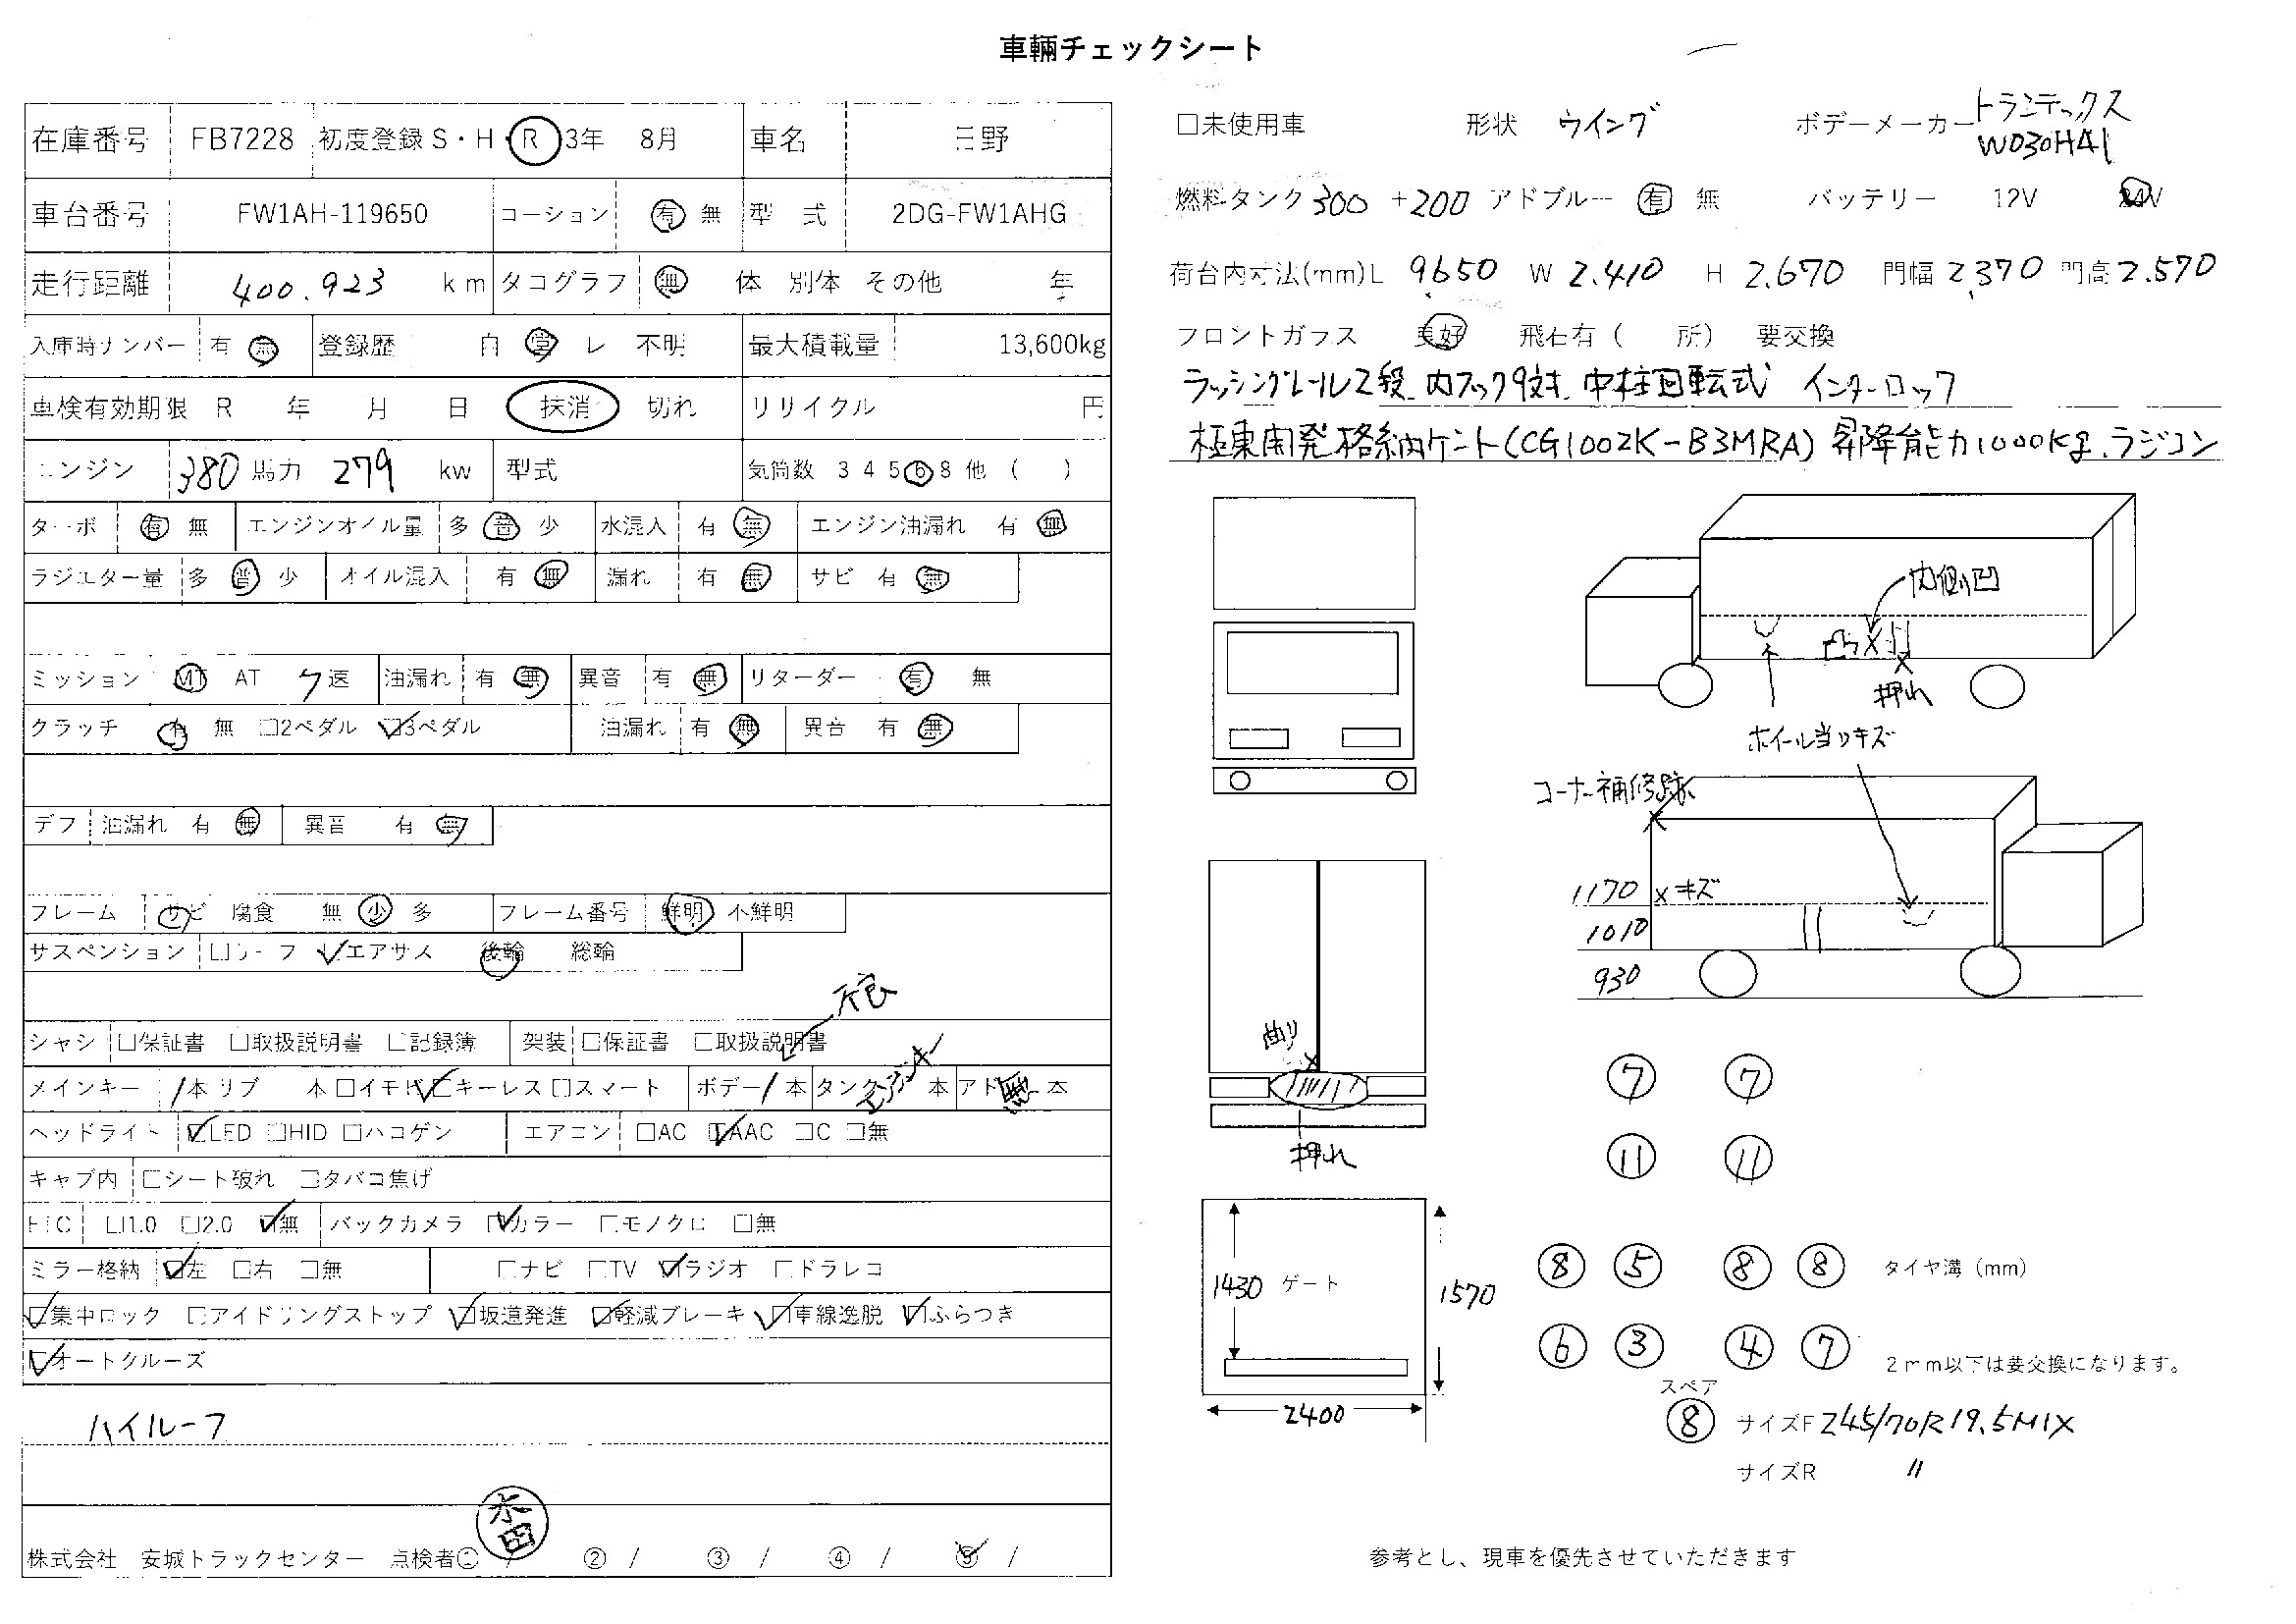 車輌チェックシート
在庫番号 FB7228 初度登録 S・H・R 3年 8月 車名 日野
車台番号 FW1AH-119650 コーション 有 無 型 式 2DG-FW1AHG
走行距離 400.923 km タコグラフ 無 体 別体 その他 年
入庫時ナンバー 有 無 登録歴 自 営 レ 不明 最大積載量 13,600kg
車検有効期限 R 年 月 日 抹消 切れ リサイクル 円
エンジン 380 馬力 279 kw 型式 気筒数 3 4 5 6 8 他 ( )
ターボ 有 無 エンジンオイル量 多 普 少 水混入 有 無 エンジン油漏れ 有 無
ラジエター量 多 普 少 オイル混入 有 無 漏れ 有 無 サビ 有 無
ミッション MT AT 7速 油漏れ 有 無 異音 有 無 リターダー 有 無
クラッチ 有 無 □2ペダル ☑3ペダル 油漏れ 有 無 異音 有 無
デフ 油漏れ 有 無 異音 有 無
フレーム サビ 腐食 無 少 多 フレーム番号 鮮明 不鮮明
サスペンション □リーフ ☑エアサス 後輪 総輪
不良
シャシ □保証書 □取扱説明書 □記録簿 架装 □保証書 □取扱説明書
メインキー 1本 サブ 本 □イモビ ☑キーレス □スマート ボデー 1本 タンク エンジンキー 本 アドブルー 無 本
ヘッドライト ☑LED □HID □ハロゲン エアコン □AC ☑AAC □C □無
キャブ内 □シート破れ □タバコ焦げ
ETC □1.0 □2.0 ☑無 バックカメラ ☑カラー □モノクロ □無
ミラー格納 ☑左 □右 □無 □ナビ □TV ☑ラジオ □ドラレコ
☑集中ロック □アイドリングストップ ☑坂道発進 ☑軽減ブレーキ ☑車線逸脱 ☑ふらつき
☑オートクルーズ
ハイルーフ
株式会社 安城トラックセンター 点検者① / ② / ③ / ④ / ⑤ /
□未使用車 形状 ウイング ボデーメーカー トランテックス
W030H41
燃料タンク 300 +200 アドブルー 有 無 バッテリー 12V 24V
荷台内寸法(mm) L 9.650 W 2.410 H 2.670 門幅 2,370 門高 2.570
フロントガラス 良好 飛石有 ( 所) 要交換
ラッシングレール2段、内フック9対、中柱回転式 インターロック
極東開発格納ゲート(CG1002K-B3MRA) 昇降能力1000kg、ラジコン
内側凹
凸
押れ
ホイール当りキズ
コーナー補修跡
1170 キズ
1010
930
曲り
押れ
⑦ ⑦
⑪ ⑪
⑧ ⑤ ⑧ ⑧ タイヤ溝 (mm)
1430 ゲート 1570
⑥ ③ ④ ⑦ 2mm以下は要交換になります。
2400
スペア
⑧ サイズF 245/70R19.5MIX
サイズR 〃
参考とし、現車を優先させていただきます